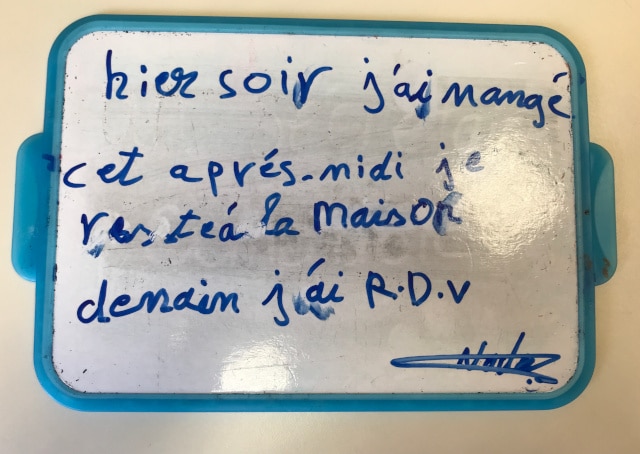 hier soir j'ai mangé
cet aprés-midi je
resteá la maison
demain j'ái R.D.V